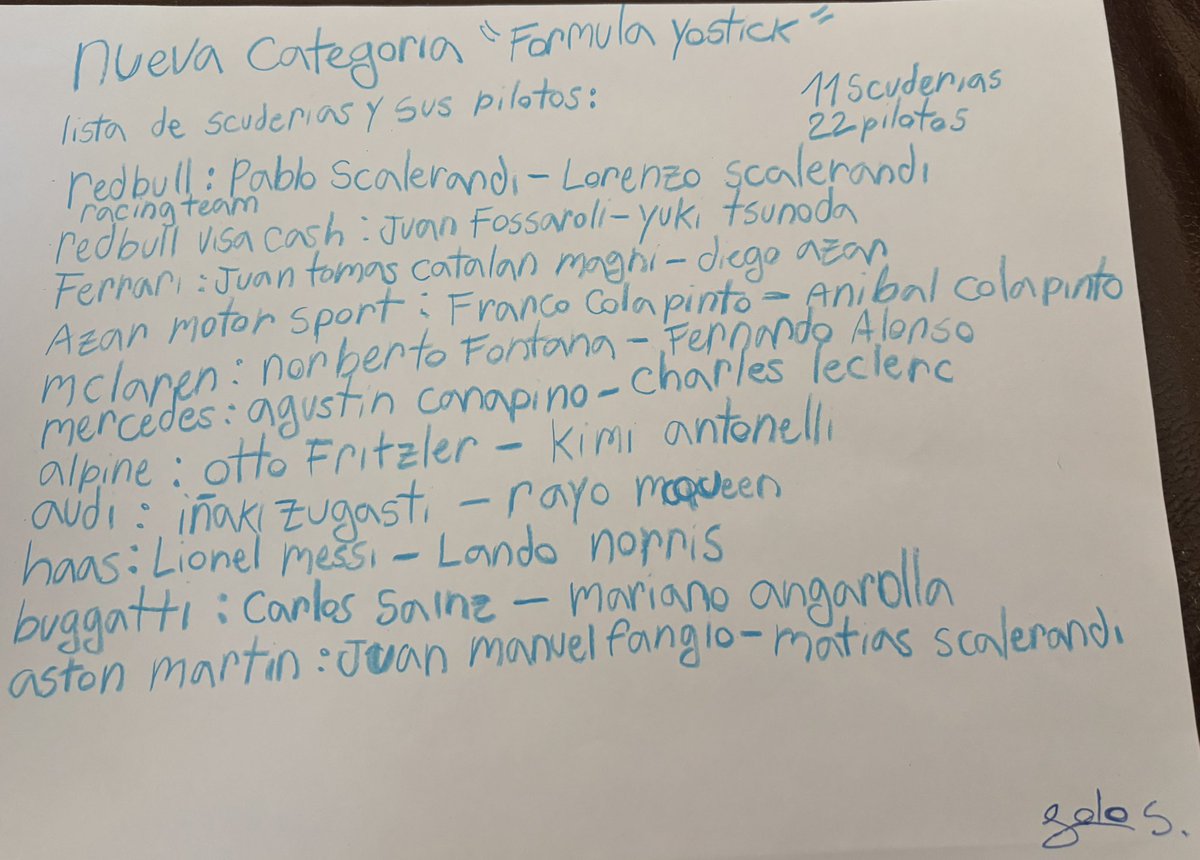 nueva categoria "Formula yostick"
lista de scuderias y sus pilotos:
11 scuderias
22 pilotos
redbull: Pablo Scalerandi - Lorenzo scalerandi
racing team
redbull visa cash: Juan Fossaroli - yuki tsunoda
Ferrari: Juan tomas catalan magni - diego azar
Azar motor sport: Franco Colapinto - Anibal colapinto
mclaren: norberto Fontana - Fernando Alonso
mercedes: agustin canapino - charles leclerc
alpine: otto Fritzler - kimi antonelli
audi: iñaki zugasti - rayo mcqueen
haas: Lionel messi - Lando norris
buggatti: Carlos Sainz - mariano angarolla
aston martin: Juan manuel fangio - matias scalerandi
golo S.